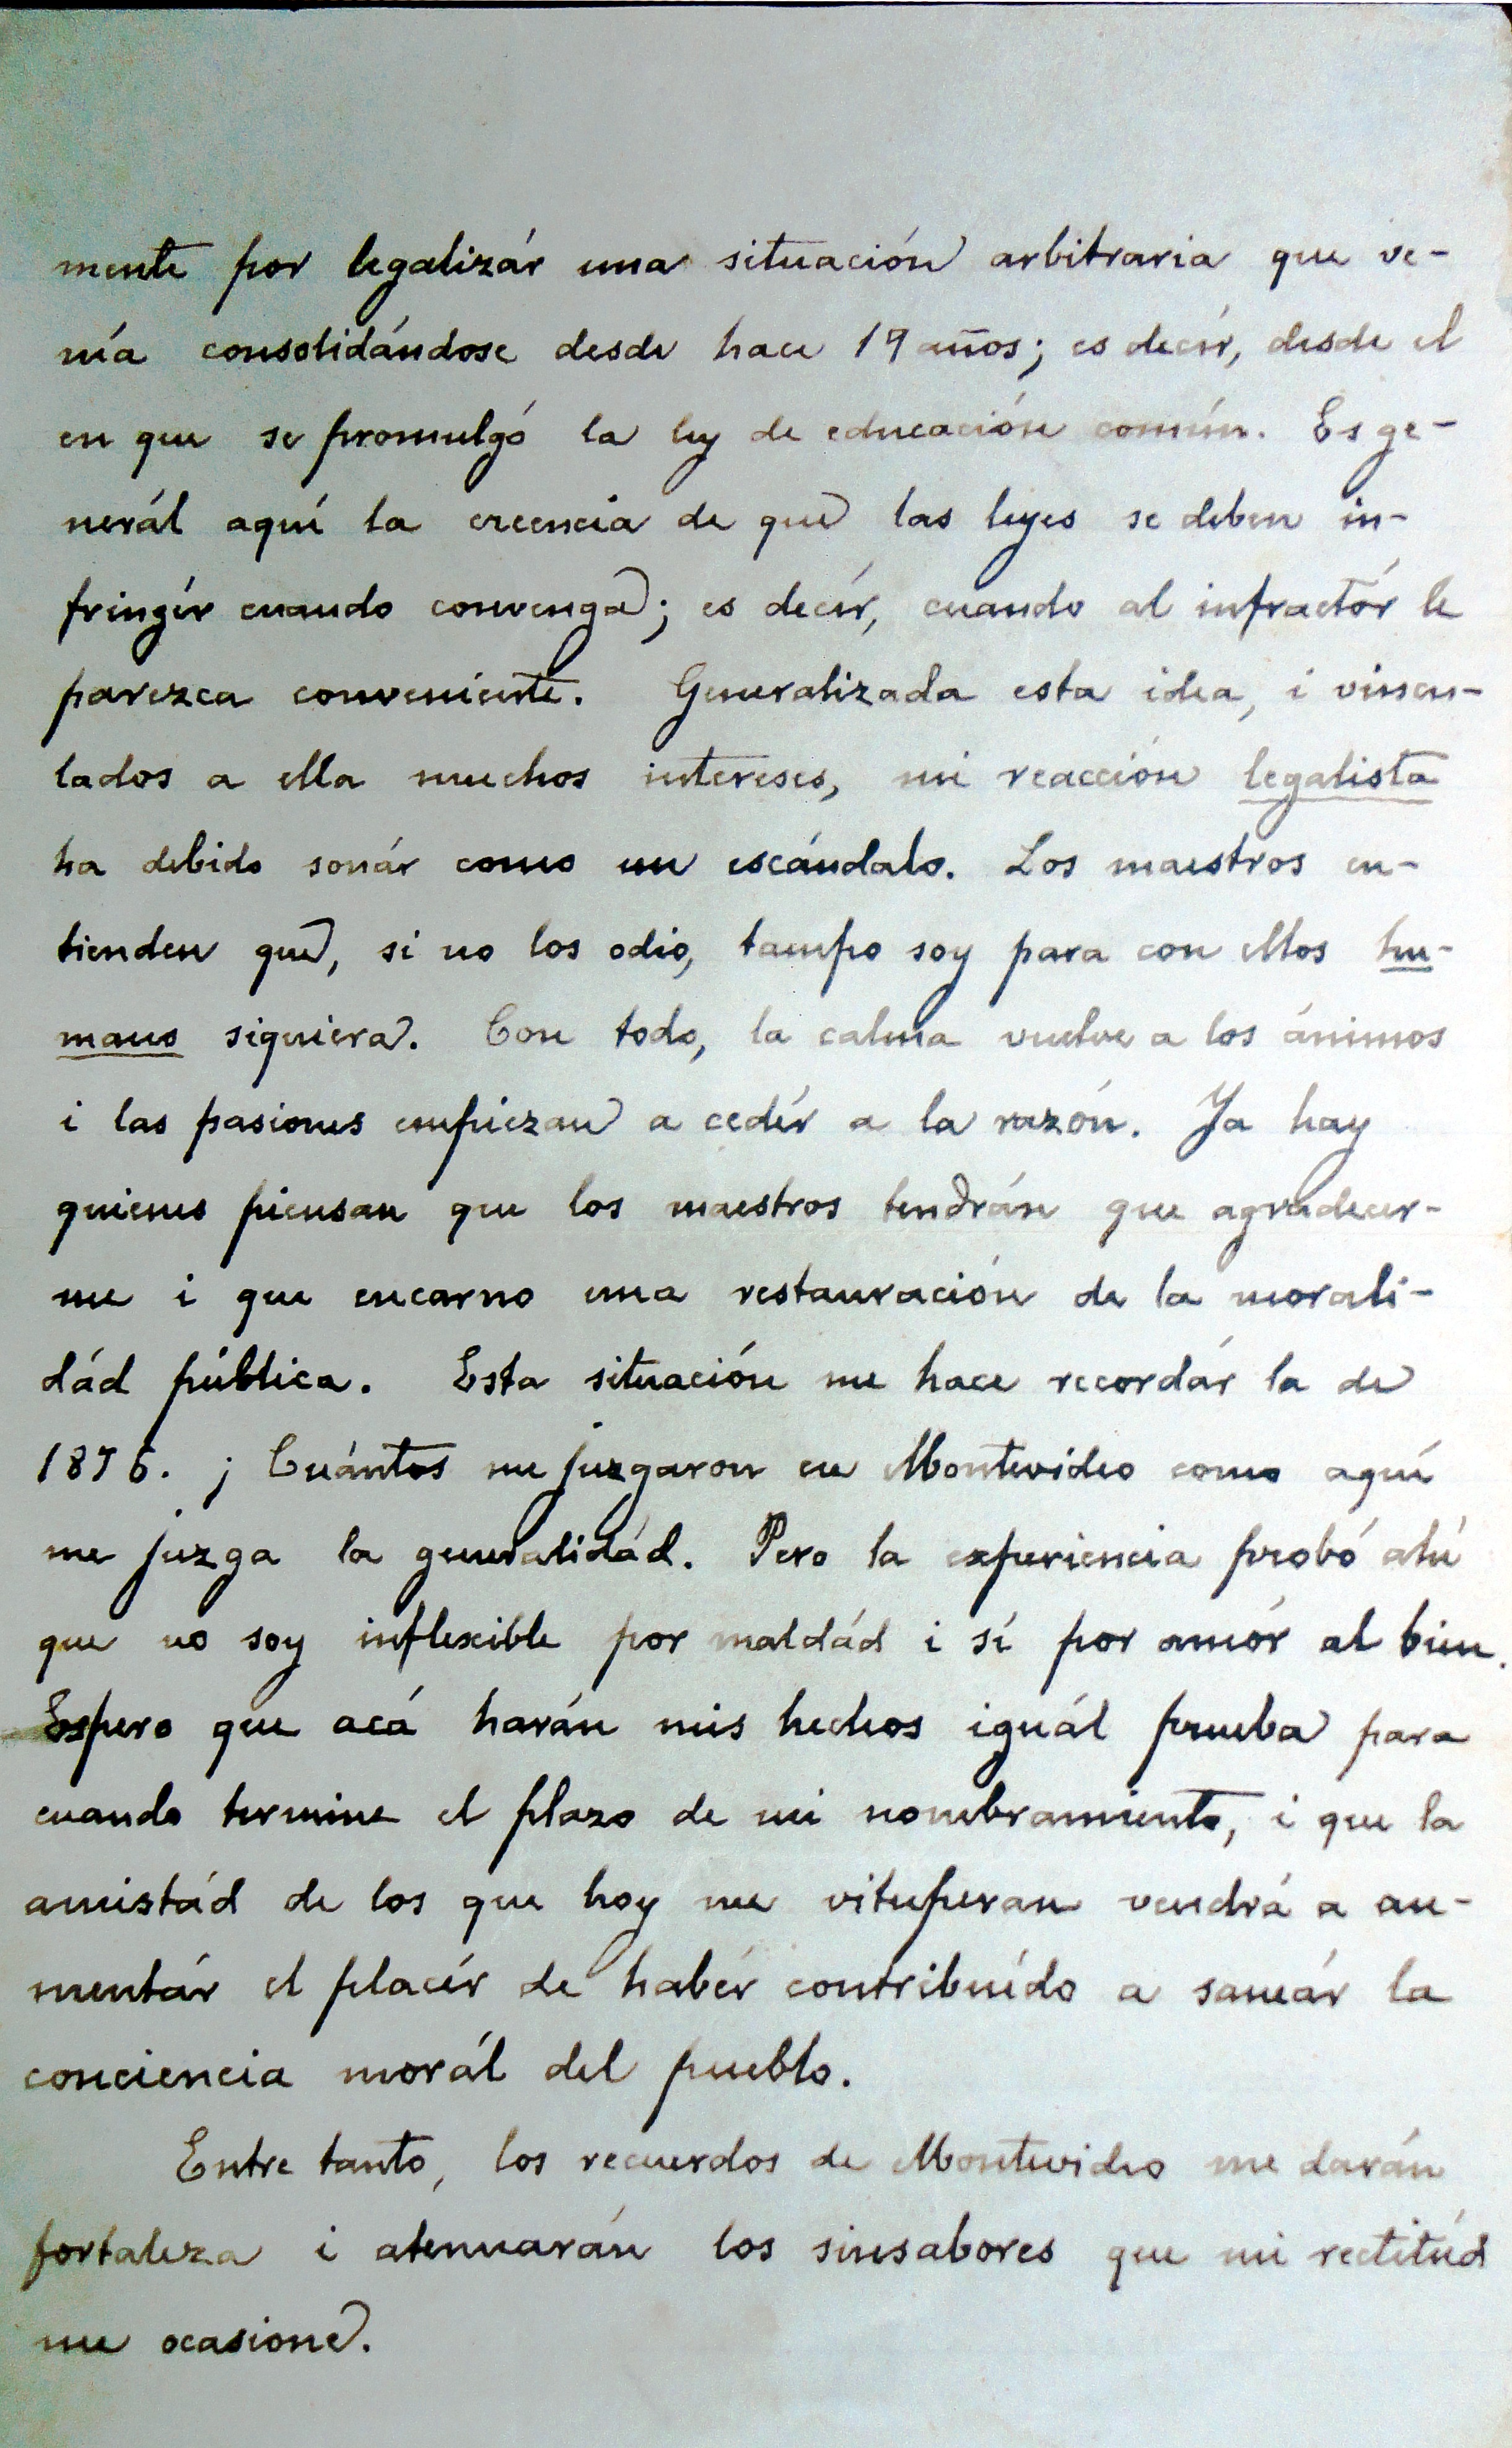 mente por legalizár una situación arbitraria que ve-
nía consolidándose desde hace 19 años; es decír, desde el
en que se promulgó la ley de educación común. Es ge-
nerál aquí la creencia de que las leyes se deben in-
fringír cuando convenga; es decír, cuando al infractór le
parezca conveniente. Generalizada esta idea, i vincu-
lados a ella muchos intereses, mi reacción legalista
ha debido sonár como un escándalo. Los maestros en-
tienden que, si no los odio, tampo soy para con ellos hu-
mano siquiera. Con todo, la calma vuelve a los ánimos
i las pasiones empiezan a cedér a la razón. Ya hay
quienes piensan que los maestros tendrán que agradecer-
me i que encarno una restauración de la morali-
dád pública. Esta situación me hace recordár la de
1876. ¡Cuántos me juzgaron en Montevideo como aquí
me juzga la generalidád. Pero la experiencia probó ahí
que no soy inflexible por maldád i sí por amór al bien.
Espero que acá harán mis hechos iguál prueba para
cuando termine el plazo de mi nombramiento, i que la
amistád de los que hoy me vituperan vendrá a au-
mentár el placér de habér contribuído a saneár la
conciencia morál del pueblo.
Entre tanto, los recuerdos de Montevideo me darán
fortaleza i atenuarán los sinsabores que mi rectitúd
me ocasione.